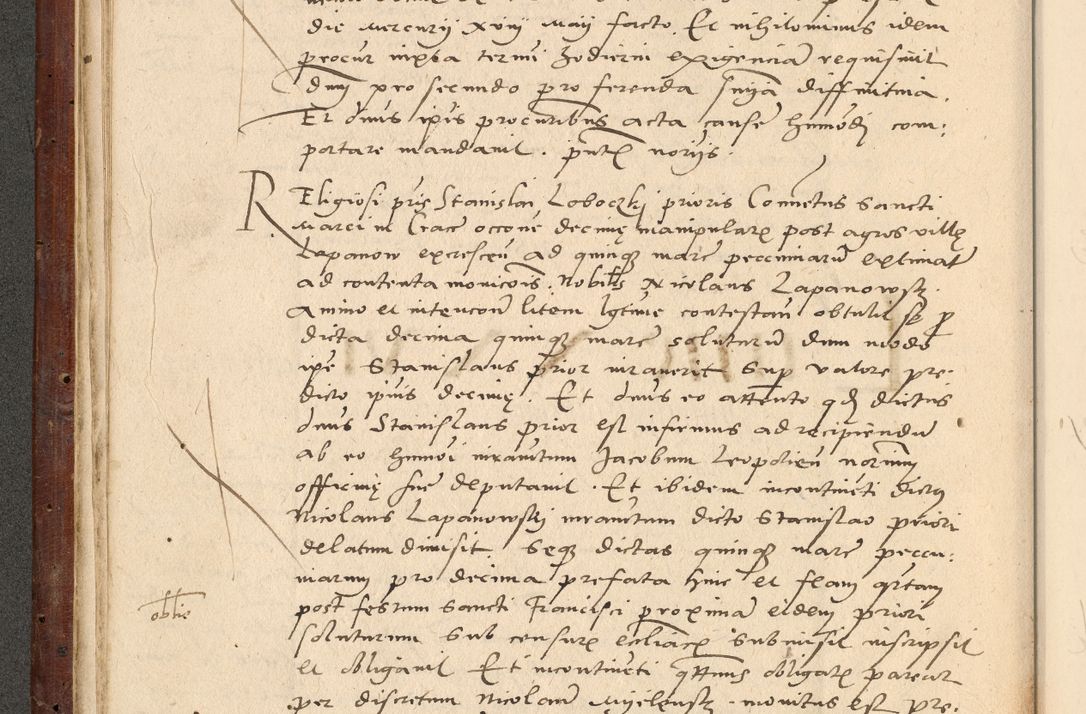 die Mercurij xviij Maij facto. Et nihilominus idem
procur iuxta termi hodierni exigenciā requisiuit
dnm pro secundo pro ferenda snīa diffinitiua.
Et dnus ipis procuribus acta cause hmōdj com:
portare mandauit. pntē noriis.
Religiosi pris Stanislai Loboczkj prioris Conuetus Sancti
Marci in Crace occone decimę manipularę post agros villę
Lapanow excrescen ad quinq marc pecciniarū extimat
ad contenta monicois. Nobilis Nicolaus Lapanowskj.
Animo et intencone litem lgtime contestan obtulit se p
dicta decima quinq marc soluturū dum modo
ipe Stanislaus prior iurauerit sup valore pre-
dicto ipius decimę. Et dnus eo attento qd dictus
dnus Stanislaus prior est infirmus ad recipiendū
ab eo hmoi iuramtum Jacobum Leopolien norium
officiuę sue deputauit. Et ibidem incontineti dictus
Nicolaus Lapanowskj iuramtum dicto Stanislao priori
delatum dimisit Seq dictas quinq marc peccu:
niarum pro decima prefata hinc et feriam qrtam
post festum Sancti Francisci proximā eidem priori
soluturum sub censuris eccliaces submisit inscripsit
et obligauit Et incontineti qttnus obligatę pareat
per discretum Nicolaum Myelensk monitus est pre-
obltio